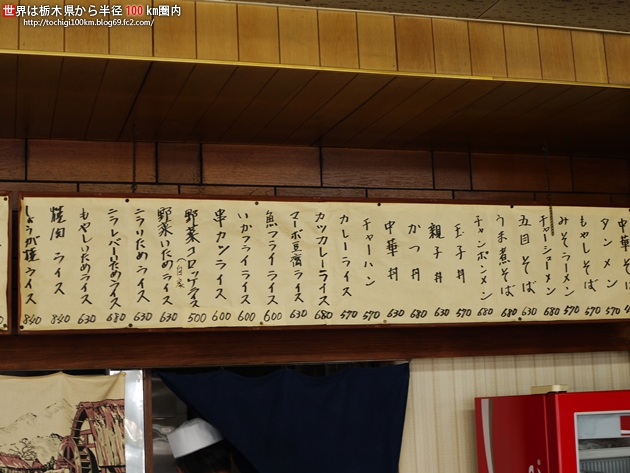 世界は栃木県から半径 100 km圏内
http://tochigi100km.blog69.fc2.com/
タンメン 570
もやしそば 570
みそラーメン 570
チャーシューメン 680
五目そば 630
うま煮そば 680
チャンポンメン 680
玉子丼 570
親子丼 630
かつ丼 680
中華丼 630
チャーハン 570
カレーライス 570
カツカレーライス 680
マーボ豆腐ライス 630
魚フライライス 600
いかフライライス 600
串カツライス 600
野菜コロッケライス 500
野菜いためライス 630
ニラいためライス 630
ニラレバーいためライス 680
もやしいためライス 630
焼肉ライス 840
しょうが焼ライス 840